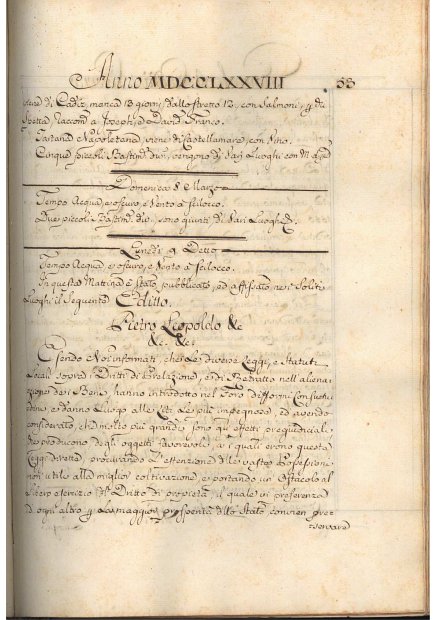 Anno MDCCLXXVIII 53
di Cadiz, manca 13 giorni, dallo stretto 12, con Salmoni, q. di
Spetta Raccom a Joseph, e David Franco.
Tartana Napoletana, viene di Castellamare, con Vino.
Cinque piccoli Bastim: div: vengono di Vari Luoghi con
Domenica 8 Marzo
Tempo Acqua, e oscuro, e Vento a Scilocco.
Due piccoli Bastim: div: sono giunti di Vari Luoghi &c.
Lunedì 9 Detto
Tempo Acqua, e oscuro, e Vento a Scilocco.
In questa Mattina è Stato pubblicato, ed affissato, nei Soliti
Luoghi il Seguente Editto.
Pietro Leopoldo &c
&c. &c.
Essendo Noi informati, che Le diverse Leggi, e Statuti
Locali sopra i Dritti di Prelazione, e di Retratto nell aliena-
zione dei Beni, hanno introdotto nel Foro difformi Consue-
tudini, e danno Luogo alle Liti Le più impegnose, ed avendo
considerato, che molto più grandi sono gli effetti pregiudiciali,
che producono degli oggetti favorevoli, a i quali erono questa
Leggi dirette, procurando L'estenzione delle vaste Possessioni
non utili alla miglior coltivazione, e portando un Ostacolo al
Libero esercizio del Dritto di proprietà, il quale in preferenza
d'ogni altro p. La maggior prosperità dello Stato convien pre=
=servare